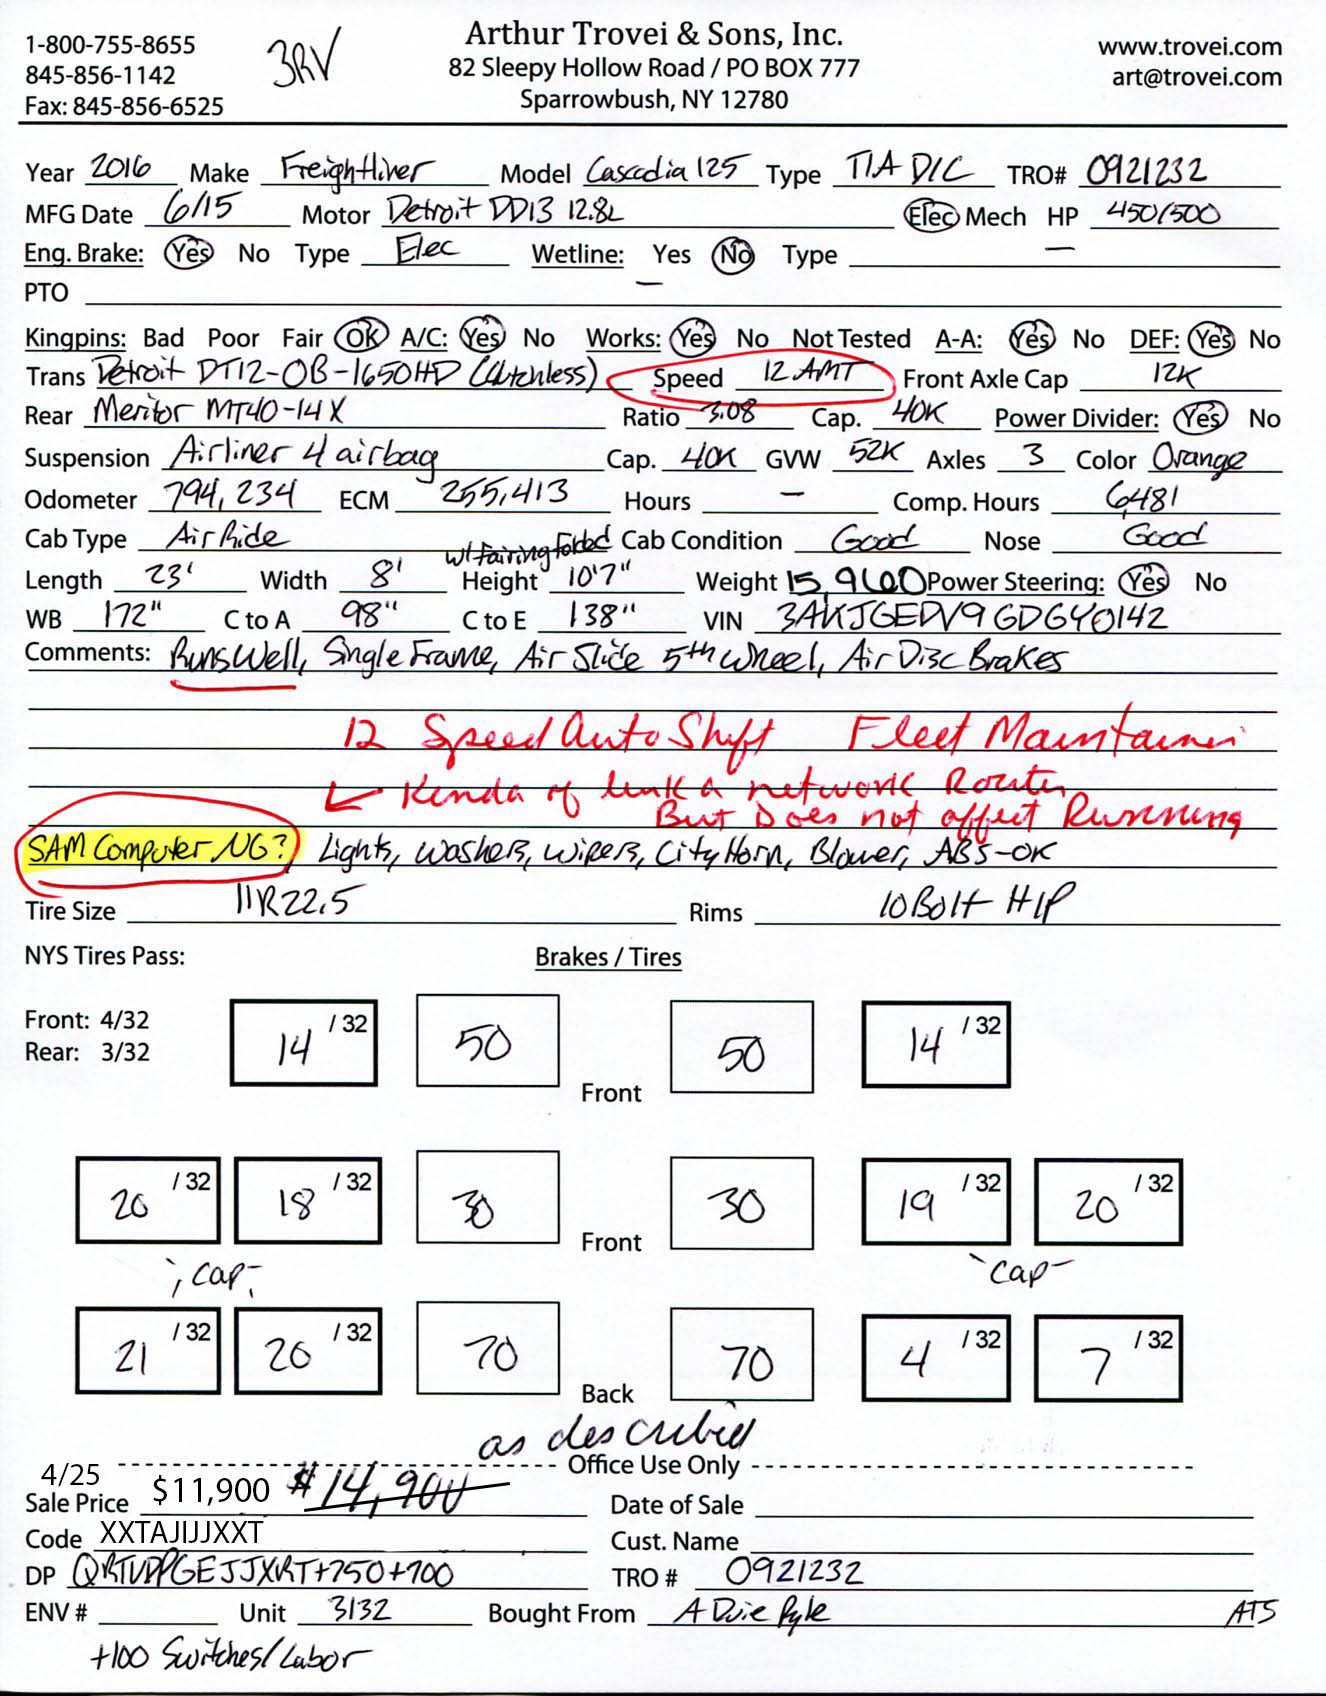 Arthur Trovei & Sons, Inc.
1-800-755-8655 3RV 82 Sleepy Hollow Road / PO BOX 777 www.trovei.com
845-856-1142 Sparrowbush, NY 12780 art@trovei.com
Fax: 845-856-6525
Year 2016 Make Freightliner Model Cascadia 125 Type T/A D/C TRO# 0921232
MFG Date 6/15 Motor Detroit DD13 12.8L Elec Mech HP 450/500
Eng. Brake: Yes No Type Elec Wetline: Yes No Type —
PTO —
Kingpins: Bad Poor Fair OK A/C: Yes No Works: Yes No Not Tested A-A: Yes No DEF: Yes No
Trans Detroit DT12-OB-1650HD (Clutchless) Speed 12 AMT Front Axle Cap 12K
Rear Meritor MT40-14X Ratio 3.08 Cap. 40K Power Divider: Yes No
Suspension Airliner 4 airbag Cap. 40K GVW 52K Axles 3 Color Orange
Odometer 794,234 ECM 255,413 Hours — Comp. Hours 6,481
Cab Type Air Ride Cab Condition Good Nose Good
w/ Fairing Folded
Length 23' Width 8' Height 10'7" Weight 15,960 Power Steering: Yes No
WB 172" C to A 98" C to E 138" VIN 3AKJGEDV9GDGY0142
Comments: Runs Well, Single Frame, Air Slide 5th Wheel, Air Disc Brakes
12 Speed Auto Shift Fleet Maintained
Kinda of like a network Router
But Does not affect Running
SAM Computer NG? Lights, Washers, Wipers, City Horn, Blower, ABS-OK
Tire Size 11R22.5 Rims 10 Bolt H/P
NYS Tires Pass: Brakes / Tires
Front: 4/32 14 /32 50 50 14 /32
Rear: 3/32
Front
20 /32 18 /32 30 30 19 /32 20 /32
Front
cap cap
21 /32 20 /32 70 70 4 /32 7 /32
Back
as described
4/25 Office Use Only
Sale Price $11,900 $14,900 Date of Sale
Code XXTAJIJJXXT Cust. Name
DP QRTVDPGEJJXRT+750+700 TRO # 0921232
ENV # Unit 3132 Bought From A Duie Pyle ATS
+100 Switches/Labor